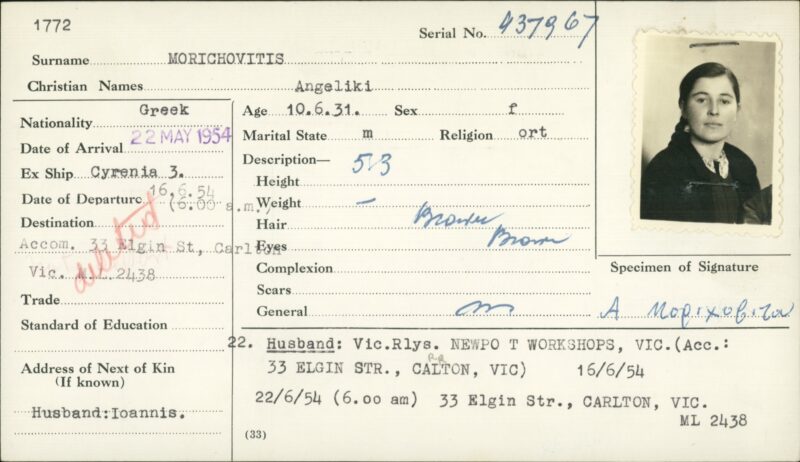 1772
Serial No. 437967
Surname MORICHOVITIS
Christian Names Angeliki
Nationality Greek
Date of Arrival 22 MAY 1954
Ex Ship Cyrenia 3.
Date of Departure 16.6.54
(6.00 a.m.)
Destination
Accom. 33 Elgin St, Carlton
Vic. M.L. 2438
deleted
Trade
Standard of Education
Address of Next of Kin
(If known)
Husband:Ioannis.
Age 10.6.31. Sex f
Marital State m Religion ort
Description—
Height 5/3
Weight –
Hair Brown
Eyes Brown
Complexion
Scars
General
Specimen of Signature
Α Μοριχοβιτου
22. Husband: Vic.Rlys. NEWPO T WORKSHOPS, VIC.(Acc.:
33 ELGIN STR., CALTON, VIC) 16/6/54
22/6/54 (6.oo am) 33 Elgin Str., CARLTON, VIC.
ML 2438
(33)